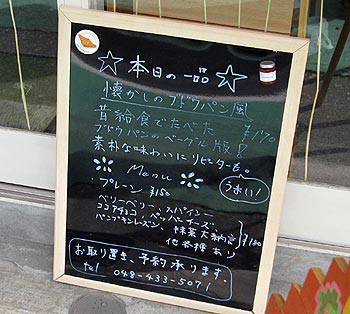 ☆本日の一品☆
懐かしのブドウパン風
昔給食でたべた ¥170
ブドウパンのベーグル版!
素朴な味わいにリピーターも。
Menu
うまい!
プレーン ¥150
ベリーベリー、スパイシー
ココアチョコ、ペッパーチーズ
パンプキンレーズン、抹茶大納言 ¥180
他各種あり
お取り置き、予約承ります。
tel 048-433-5071